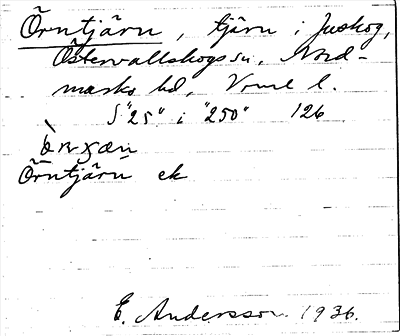 Örntjärn, tjärn i Juskog,
Östervallskogs sn, Nord-
marks hd, Vrml l.
S "25" i "250" 126
Örntjärn ek
E. Andersson 1936.